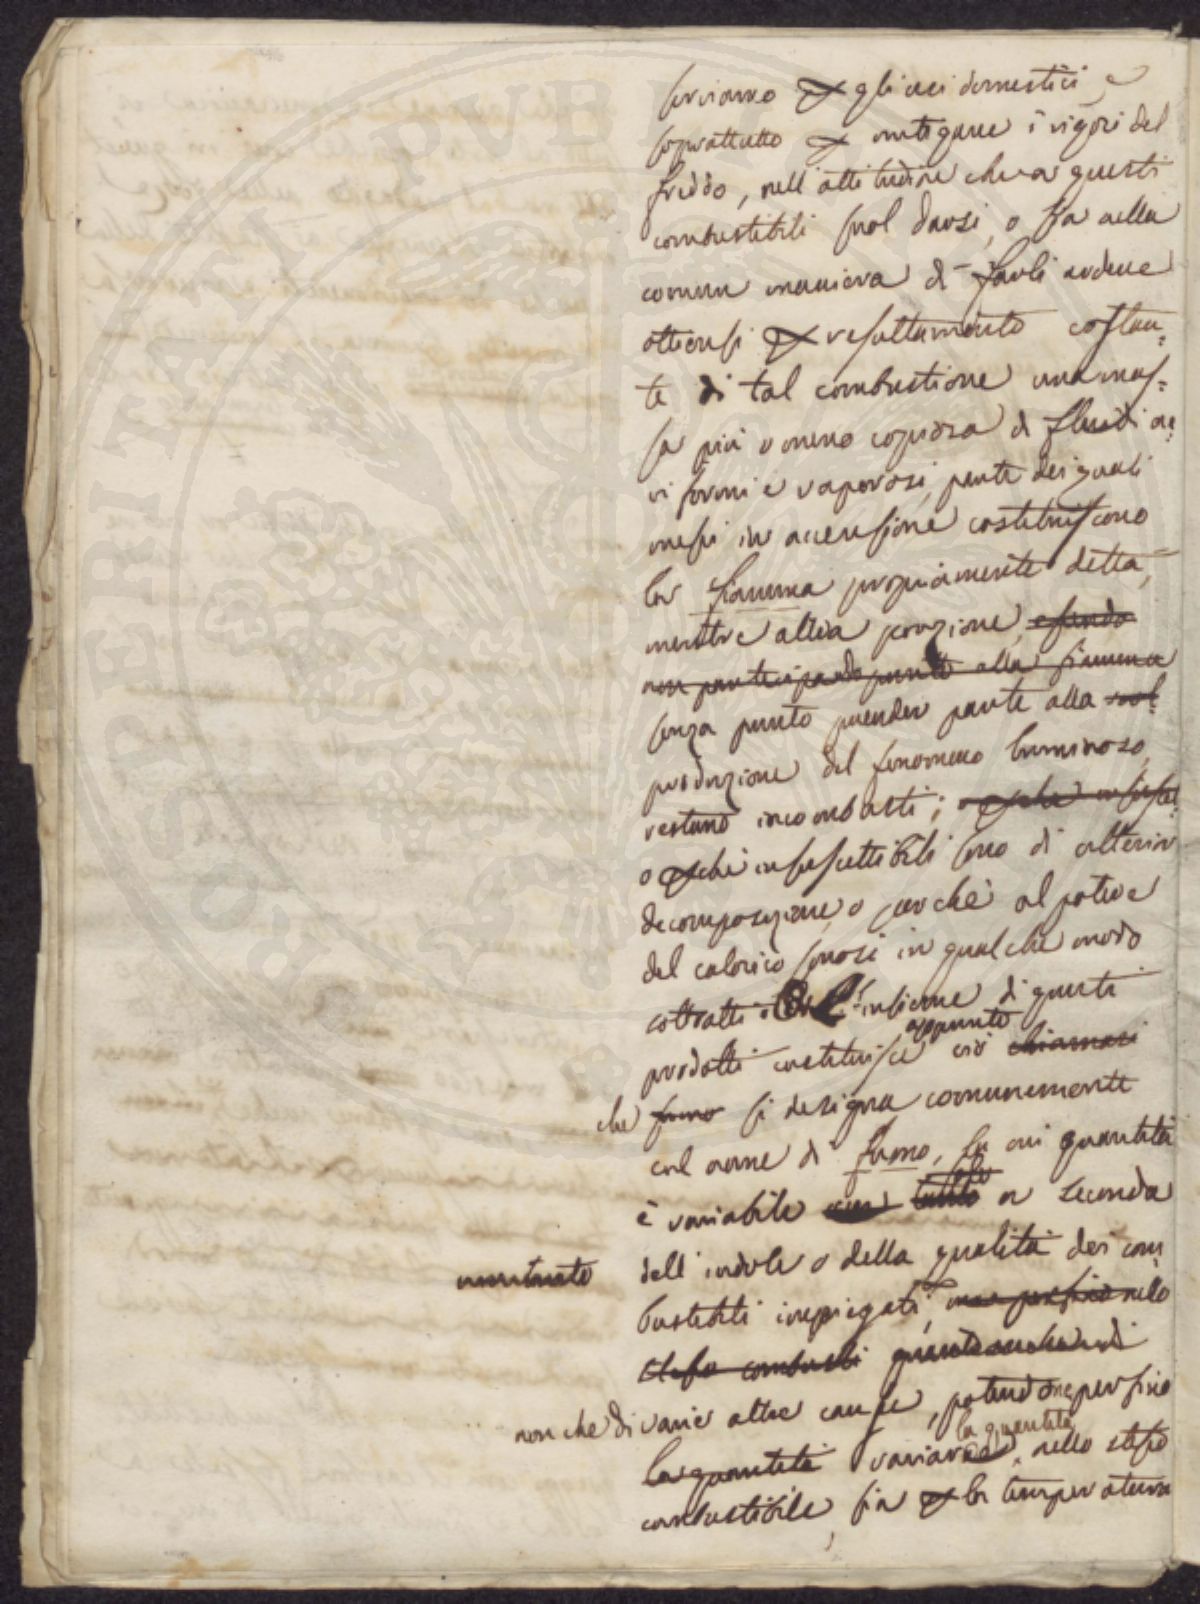 serviamo per gli usi domestici, e
soprattutto per mitigare i rigori del
freddo, nell'attitudine che a questi
combustibili suol darsi, o sia nella
comun maniera di farli ardere
ottiensi per resultamento costan=
te di tal combustione una mas=
sa più o meno copiosa di fluidi ae=
riformi e vaporosi, parte dei quali
messi in accensione costituiscono
la fiamma propriamente detta,
mentre altra porzione, essendo
non partecipando punto alla fiamma
senza punto prender parte alla
produzione del fenomeno luminoso,
restano incombusti; o perchè insuscet=
o perchè insuscettibili sono di ulterior
decomposizione, o perchè al potere
del calorico sonosi in qualche modo
sottratti. L'insieme di questi
prodotti costituisce appunto ciò chiamasi
che fumo si designa comunemente
col nome di fumo, la cui quantità
è variabile non tanto solo a seconda
dell'indole o della qualità dei com=
bustibili impiegati, ma perfino nello
stesso combusti quanto anche di
non che di varie altre cause, potendone perfino
la quantità variare la quantità, nello stesso
combustibile, sia per la temperatura